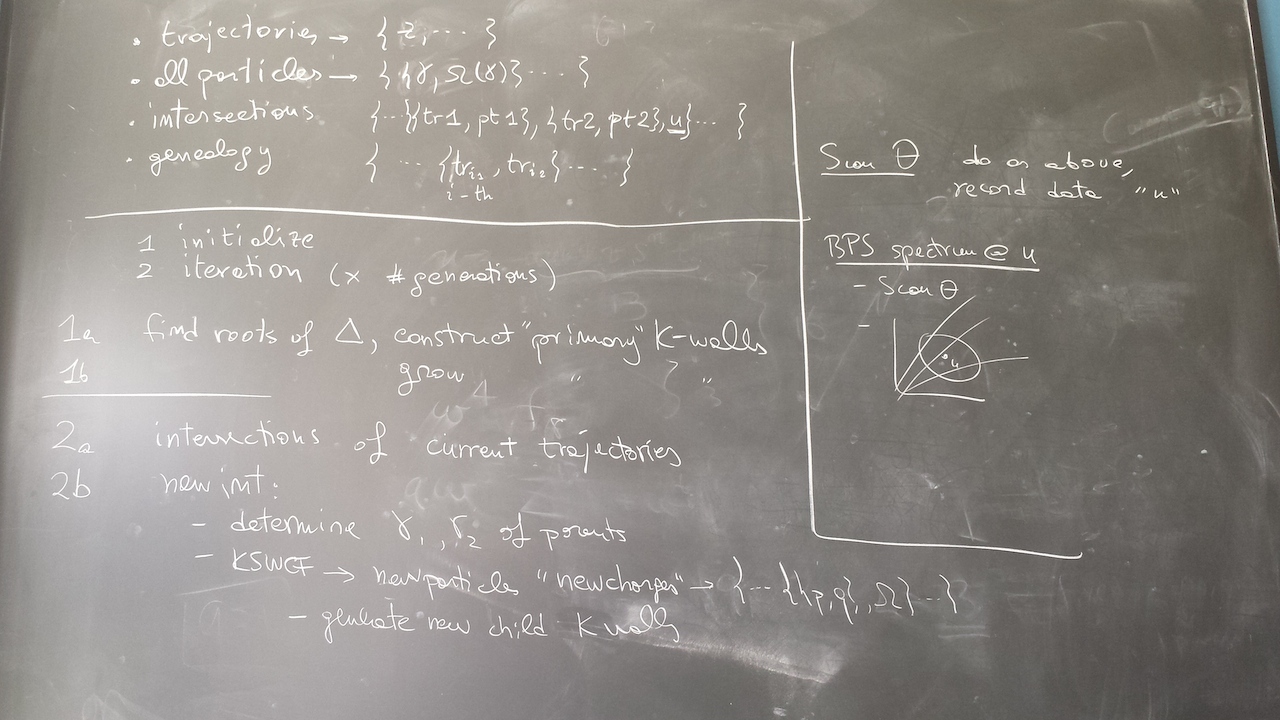 • trajectories → { z, ··· }
• all particles → { {γ, Ω(γ)} ··· }
• intersections { ··· {{tr1, pt1}, {tr2, pt2}, u} ··· }
• genealogy { ··· {tr_i1, tr_i2} ··· }
i-th
1 initialize
2 iteration (× # generations)
1a find roots of Δ, construct "primary" K-walls
1b grow " "
2a intersections of current trajectories
2b new int:
- determine γ1, γ2 of parents
- KSWCF → new particles "new charges" → { ··· {{p,q}, Ω} ··· }
- generate new child K walls
Scan θ do as above,
record data "u"
BPS spectrum @ u
- Scan θ
-
u